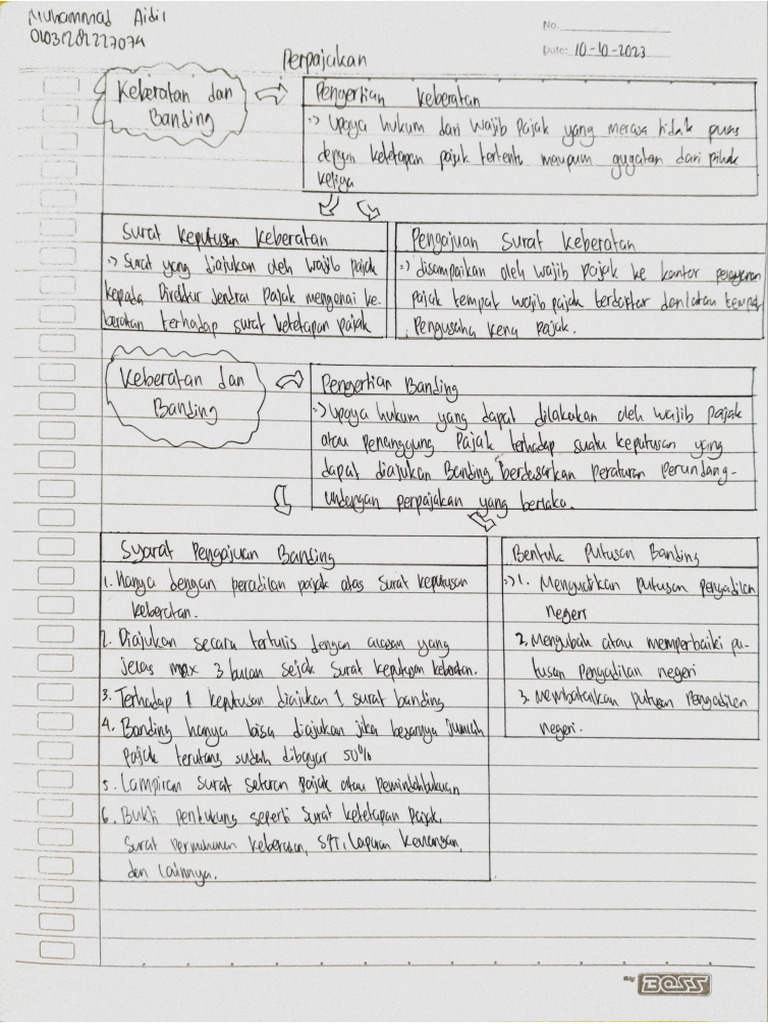 Muhammad Aidil
01031282227074
No.
Date: 10-10-2023
Perpajakan
Keberatan dan
Banding
Pengertian Keberatan
:) Upaya hukum dari wajib pajak yang merasa tidak puas
dengan ketetapan pajak tertentu maupun gugatan dari pihak
ketiga
Surat Keputusan Keberatan
:) Surat yang diajukan oleh wajib pajak
kepada Direktur Jendral Pajak mengenai ke
beratan terhadap surat ketetapan pajak
Pengajuan Surat Keberatan
:) disampaikan oleh wajib pajak ke kantor pelayanan
pajak tempat wajib pajak terdaftar dan/atau tempat
Pengusaha kena pajak.
Keberatan dan
Banding
Pengertian Banding
:) Upaya hukum yang dapat dilakukan oleh wajib pajak
atau Penanggung Pajak terhadap suatu keputusan yang
dapat diajukan Banding, berdasarkan peraturan perundang-
undangan perpajakan yang berlaku.
Syarat Pengajuan Banding
1. Hanya dengan peradilan pajak atas surat keputusan
keberatan.
2. Diajukan secara tertulis dengan alasan yang
jelas max 3 bulan sejak surat keputusan keberatan.
3. Terhadap 1 keputusan diajukan 1 surat banding
4. Banding hanya bisa diajukan jika besarnya jumlah
pajak terutang sudah dibayar 50%
5. Lampiran surat setoran pajak atau pemindahbukuan
6. Bukti pendukung seperti surat ketetapan pajak,
surat permohonan keberatan, SPT, laporan keuangan,
dan lainnya.
Bentuk Putusan Banding
:) 1. Menguatkan putusan pengadilan
negeri
2. Mengubah atau memperbaiki pu-
tusan Pengadilan negeri
3. Membatalkan putusan Pengadilan
negeri.
Big BOSS